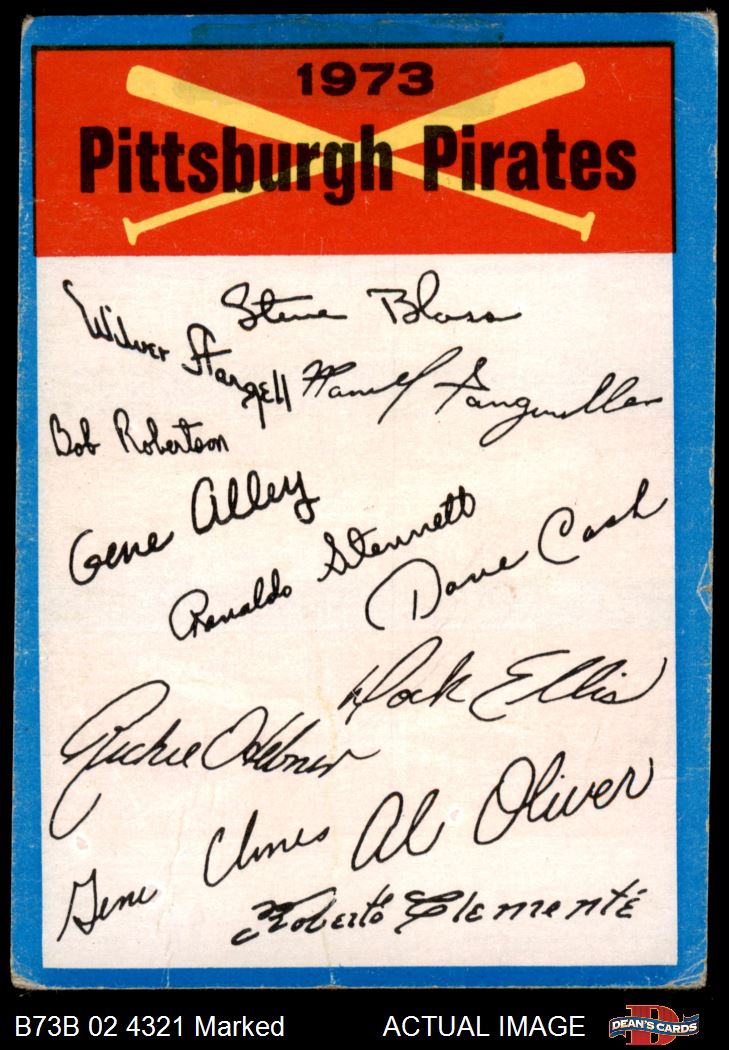 1973
Pittsburgh Pirates
Steve Blass
Wilver Stargell
Manuel Sanguillen
Bob Robertson
Gene Alley
Renaldo Stennett
Dave Cash
Dock Ellis
Richie Hebner
Al Oliver
Gene Clines
Roberto Clemente
B73B 02 4321 Marked
ACTUAL IMAGE
D
DEAN'S CARDS